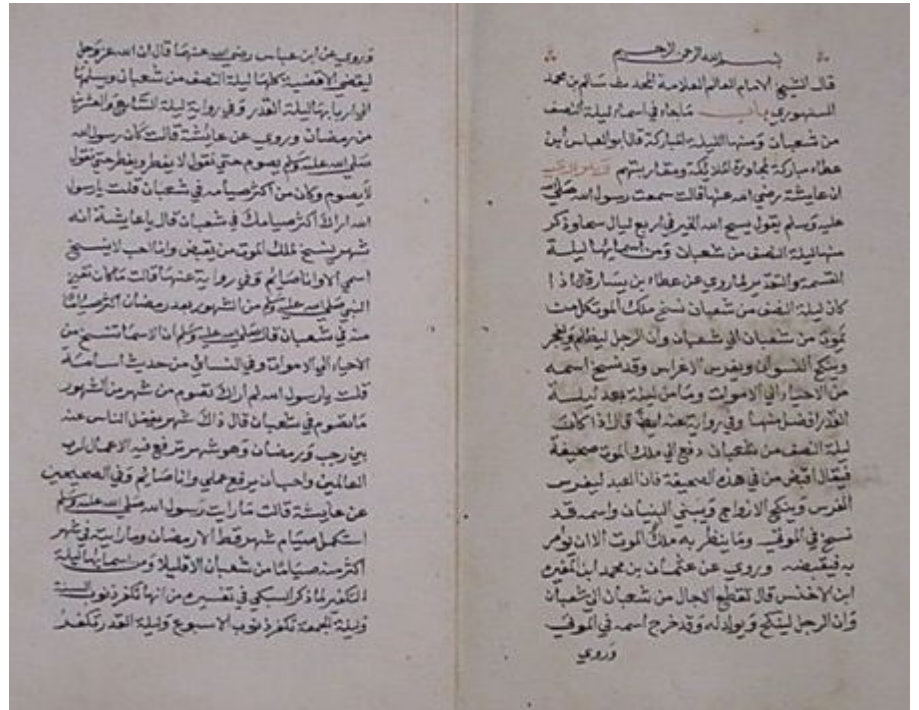 بسم الله الرحمن الرحيم
قال الشيخ الامام العالم العلامة المحدث سالم بن محمد
السنهوري باب ماجاء في اسماء ليلة النصف
من شعبان ومنها الليلة المباركة قال ابو العباس ابن
عطاء مباركة لمجاورة الملائكة ومقاربتهم
ان عايشة رضي الله عنها قالت سمعت رسول الله صلى الله
عليه وسلم يقول يسح الله الخير في اربع ليال سحا وذكر
منها ليلة النصف من شعبان ومن اسمايها ليلة
القسمة والتقدير لما روي عن عطاء بن يسار قال اذا
كان ليلة النصف من شعبان نسخ ملك الموت كل من
يموت من شعبان الي شعبان وان الرجل ليظلم ويفجر
وينكح النسوان ويغرس الاغراس وقد نسخ اسمه
من الاحياء الي الاموات وما من ليلة بعد ليلة
القدر افضل منها وفي رواية عنه ايضا قال اذا كانت
ليلة النصف من شعبان دفع الي ملك الموت صحيفة
فيقال اقبض من في هذه الصحيفة فان العبد ليغرس
الغرس وينكح الازواج ويبني البنيان واسمه قد
نسخ في الموتى وما ينظر به ملك الموت الا ان يؤمر
به فيقبضه وروي عن عثمان بن محمد ابن المغيرة
ابن الاخنس قال تقطع الاجال من شعبان الي شعبان
وان الرجل لينكح ويولد له وقد خرج اسمه في الموتى
وروي
وروي عن ابن عباس رضي الله عنهما قال ان الله عز وجل
ليقضي الاقضية كلها ليلة النصف من شعبان ويسلمها
الي اربابها ليلة القدر وفي رواية ليلة السابع والعشرين
من رمضان وروي عن عايشة قالت كان رسول الله
صلى الله عليه وسلم يصوم حتي نقول لا يفطر ويفطر حتي نقول
لا يصوم وكان من اكثر صيامه في شعبان قلت يا رسول
الله اراك اكثر صيامك في شعبان قال يا عايشة انه
شهر ينسخ لملك الموت من يقبض وانا احب لا ينسخ
اسمي الا وانا صايم وفي رواية عنها قالت ما كان
النبي صلى الله عليه وسلم من الشهور بعد رمضان اكثر صياما
منه في شعبان قال صلى الله عليه وسلم ان الاسما تنسخ من
الاحياء الي الاموات وفي النسائي من حديث اسامة
قلت يا رسول الله لم اراك تصوم من شهر من الشهور
ما تصوم في شعبان قال ذاك شهر يغفل الناس عنه
بين رجب ورمضان وهو شهر ترفع فيه الاعمال لرب
العالمين واحب ان يرفع عملي وانا صايم وفي الصحيحين
عن عايشة قالت ما رايت رسول الله صلى الله عليه وسلم
استكمل صيام شهر قط الا رمضان وما رايته في شهر
اكثر منه صياما من شعبان الا قليلا ومن اسمايها ليلة
التكفير لما ذكر السبكي في تفسيره من انها تكفر ذنوب السنة
وليلة الجمعة تكفر ذنوب الاسبوع وليلة القدر تكفر